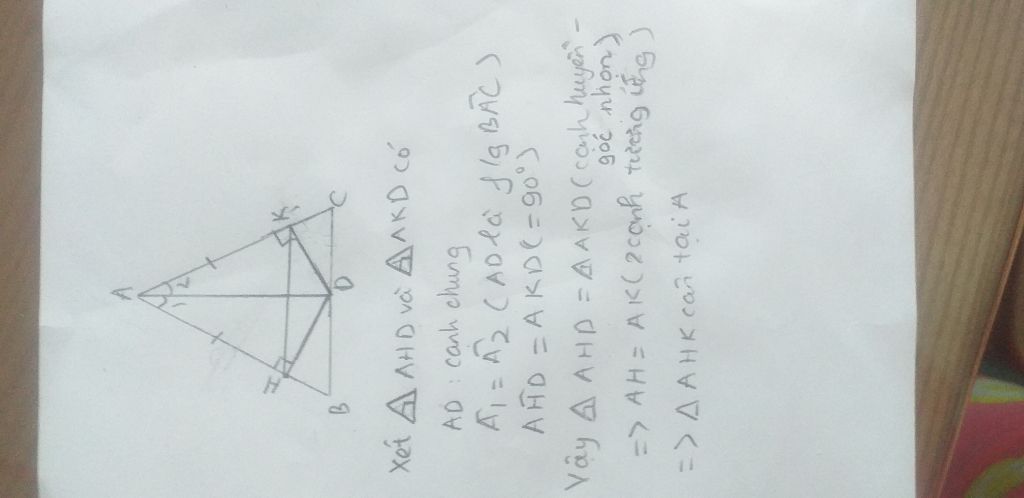 A
1 2
H K 1
B D C
Xét △ AHD và △ AKD có
AD : cạnh chung
Â1 = Â2 ( AD là f/g BÂC )
AĤD = AK̂D ( = 90° )
Vậy △ AHD = △ AKD ( cạnh huyền -
góc nhọn )
=> AH = AK ( 2 cạnh tương ứng )
=> △ AHK cân tại A